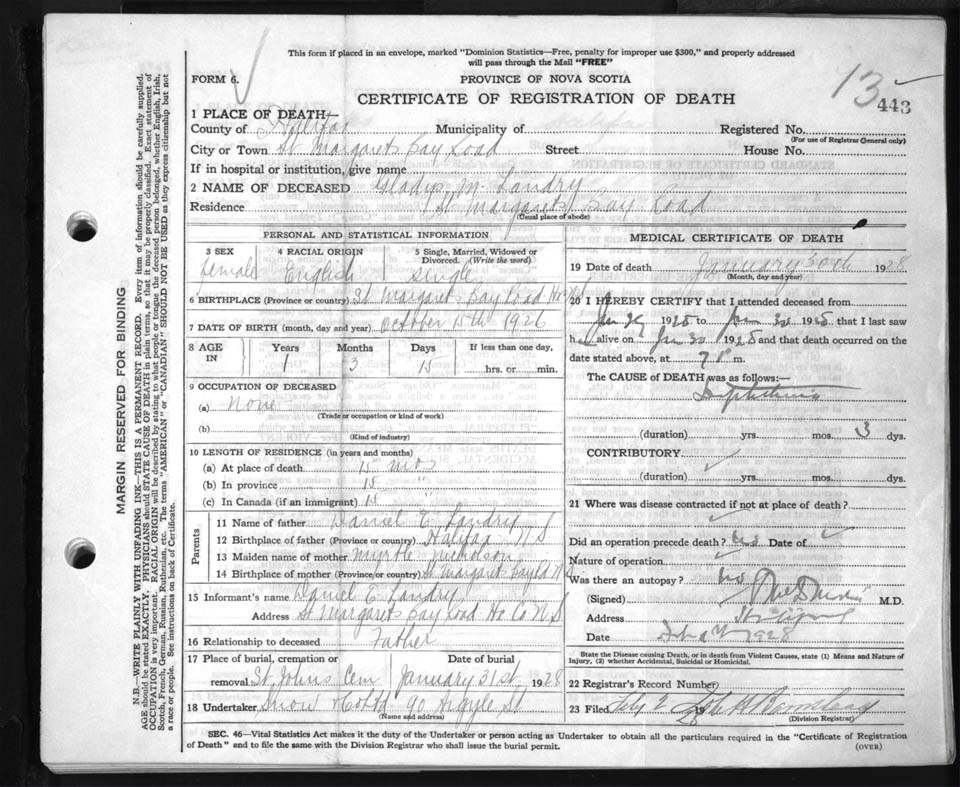 This form if placed in an envelope, marked "Dominion Statistics—Free, penalty for improper use $300," and properly addressed
will pass through the Mail "FREE"
FORM 6.
PROVINCE OF NOVA SCOTIA
13
443
CERTIFICATE OF REGISTRATION OF DEATH
1 PLACE OF DEATH—
County of Halifax Municipality of Registered No.
(For use of Registrar General only)
City or Town St Margarets Bay Road Street House No.
If in hospital or institution, give name
2 NAME OF DECEASED Gladys M. Landry
Residence St Margarets Bay Road
(Usual place of abode)
PERSONAL AND STATISTICAL INFORMATION
3 SEX 4 RACIAL ORIGIN 5 Single, Married, Widowed or
Divorced. (Write the word)
female English single
6 BIRTHPLACE (Province or country) St Margarets Bay Road
7 DATE OF BIRTH (month, day and year) October 15th 1926
8 AGE IN Years Months Days If less than one day,
1 3 15 hrs. or min.
9 OCCUPATION OF DECEASED
(a) None
(Trade or occupation or kind of work)
(b)
(Kind of industry)
10 LENGTH OF RESIDENCE (in years and months)
(a) At place of death 15 mos
(b) In province 15 "
(c) In Canada (if an immigrant) 15
Parents
11 Name of father Daniel E. Landry
12 Birthplace of father (Province or country) Halifax N S
13 Maiden name of mother Myrtle Nicholson
14 Birthplace of mother (Province or country) St Margaret Bay Rd N S
15 Informant's name Daniel E. Landry
Address St Margarets Bay Road Hx Co N S
16 Relationship to deceased Father
17 Place of burial, cremation or Date of burial
removal St Johns Cem January 31st 1928
18 Undertaker Snow & Co Ltd 90 Argyle St
(Name and address)
MEDICAL CERTIFICATE OF DEATH
19 Date of death January 30th 1928
(Month, day and year)
20 I HEREBY CERTIFY that I attended deceased from
Jan 29 1928 to Jan 30 1928 that I last saw
h alive on Jan 30 1928 and that death occurred on the
date stated above, at m.
The CAUSE of DEATH was as follows:—
Diphtheria
(duration) yrs. mos. 3 dys.
CONTRIBUTORY
(duration) yrs. mos. dys.
21 Where was disease contracted if not at place of death?
Did an operation precede death? No Date of
Nature of operation
Was there an autopsy? no
(Signed) M.D.
Address
Date 1928
State the Disease causing Death, or in death from Violent Causes, state (1) Means and Nature of
Injury, (2) whether Accidental, Suicidal or Homicidal.
22 Registrar's Record Number
23 Filed
(Division Registrar)
SEC. 46—Vital Statistics Act makes it the duty of the Undertaker or person acting as Undertaker to obtain all the particulars required in the "Certificate of Registration
of Death" and to file the same with the Division Registrar who shall issue the burial permit.
(OVER)
MARGIN RESERVED FOR BINDING
N.B.—WRITE PLAINLY WITH UNFADING INK—THIS IS A PERMANENT RECORD. Every item of information should be carefully supplied.
AGE should be stated EXACTLY. PHYSICIANS should STATE CAUSE OF DEATH in plain terms, so that it may be properly classified. Exact statement of
OCCUPATION is very important. RACIAL ORIGIN will be described by stating to what people or tongue the deceased person belonged, whether English, Irish,
Scotch, French, German, Russian, Ruthenian, etc. The terms "AMERICAN" or "CANADIAN" SHOULD NOT BE USED as they express citizenship but not
a race or people. See instructions on back of Certificate.